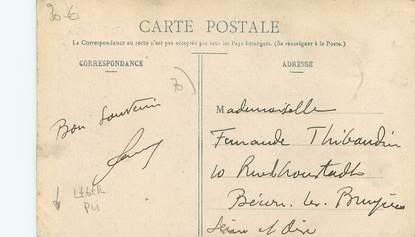 30-6
CARTE POSTALE
La Correspondance au recto n'est pas acceptée par tous les Pays étrangers. (Se renseigner à la Poste.)
CORRESPONDANCE
ADRESSE
70
Bon Souvenir
Mademoiselle
Fernande Thibaudin
10 Rue
Bécon. les. Bruyères
Seine et Oise
LEGER
PLI